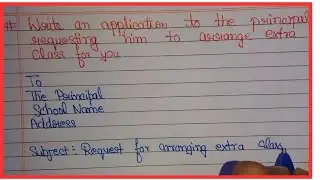 # Write an application to the principal
requesting him to arrange extra
class for you
To
The Principal
School Name
Address
Subject: Request for arranging extra class